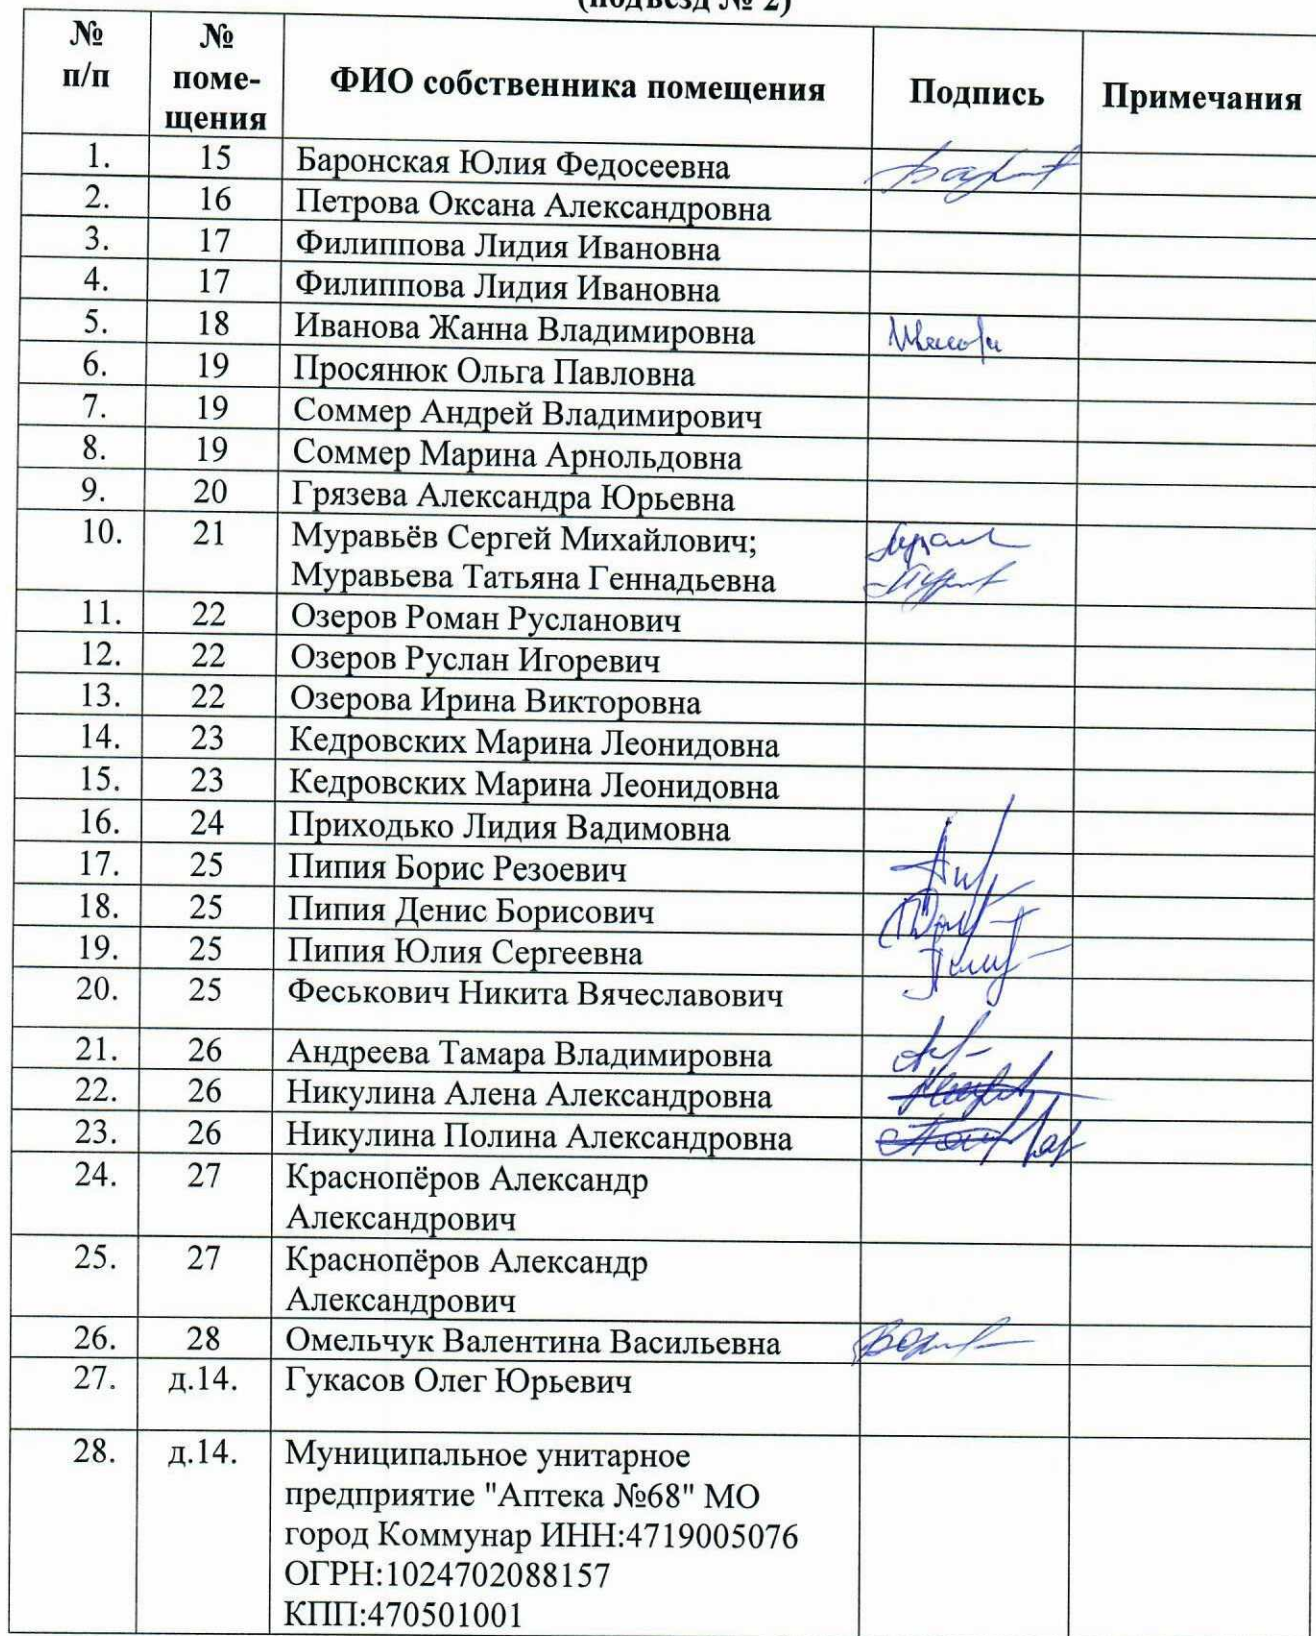 (подъезд № 2)
№ п/п № поме- щения ФИО собственника помещения Подпись Примечания
1. 15 Баронская Юлия Федосеевна
2. 16 Петрова Оксана Александровна
3. 17 Филиппова Лидия Ивановна
4. 17 Филиппова Лидия Ивановна
5. 18 Иванова Жанна Владимировна
6. 19 Просянюк Ольга Павловна
7. 19 Соммер Андрей Владимирович
8. 19 Соммер Марина Арнольдовна
9. 20 Грязева Александра Юрьевна
10. 21 Муравьёв Сергей Михайлович;
Муравьева Татьяна Геннадьевна
11. 22 Озеров Роман Русланович
12. 22 Озеров Руслан Игоревич
13. 22 Озерова Ирина Викторовна
14. 23 Кедровских Марина Леонидовна
15. 23 Кедровских Марина Леонидовна
16. 24 Приходько Лидия Вадимовна
17. 25 Пипия Борис Резоевич
18. 25 Пипия Денис Борисович
19. 25 Пипия Юлия Сергеевна
20. 25 Феськович Никита Вячеславович
21. 26 Андреева Тамара Владимировна
22. 26 Никулина Алена Александровна
23. 26 Никулина Полина Александровна
24. 27 Краснопёров Александр
Александрович
25. 27 Краснопёров Александр
Александрович
26. 28 Омельчук Валентина Васильевна
27. д.14. Гукасов Олег Юрьевич
28. д.14. Муниципальное унитарное
предприятие "Аптека №68" МО
город Коммунар ИНН:4719005076
ОГРН:1024702088157
КПП:470501001